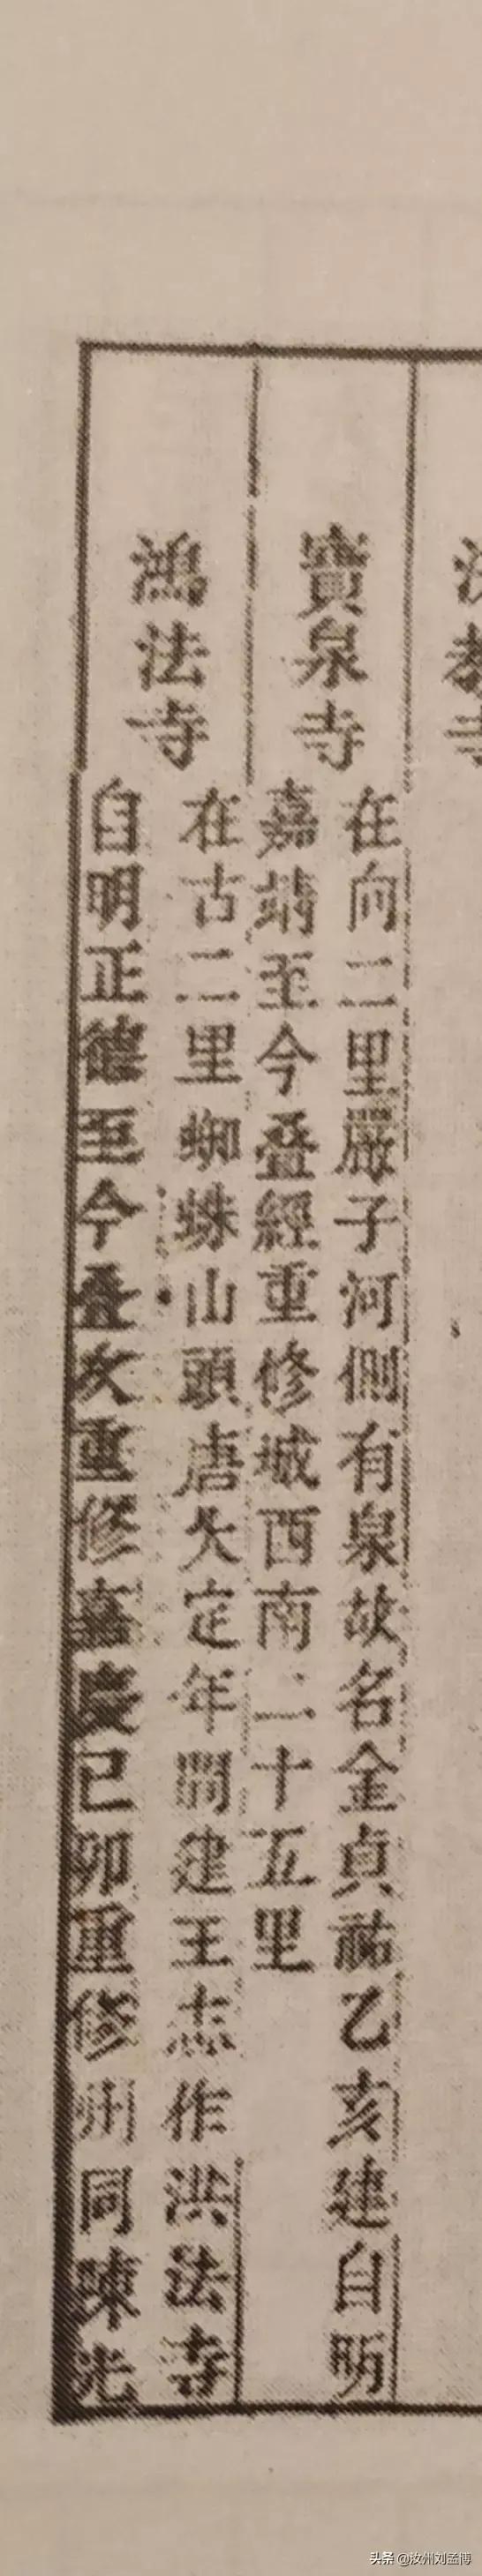 教寺
寶泉寺
在向二里嚴子河側有泉故名金貞祐乙亥建自明
嘉靖至今叠經重修城西南二十五里
鴻法寺
在古二里蜘蛛山頭唐大定年間建王志作洪法寺
自明正德至今叠次重修嘉慶己卯重修州同陳光
头条 @汝州刘孟博